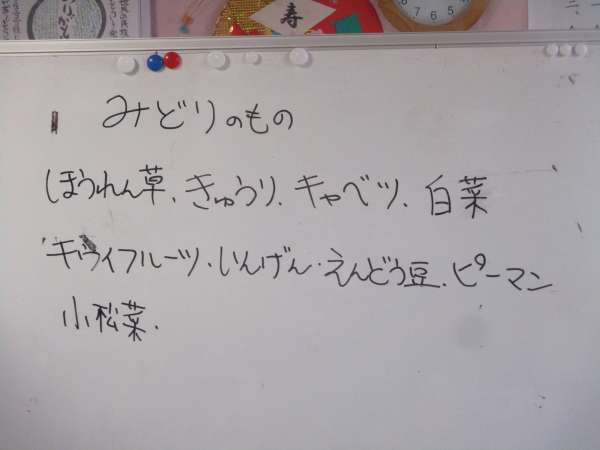 寿
6 7 8 9
みどりのもの
ほうれん草、きゅうり、キャベツ、白菜
キウイフルーツ・いんげん・えんどう豆、ピーマン
小松菜、